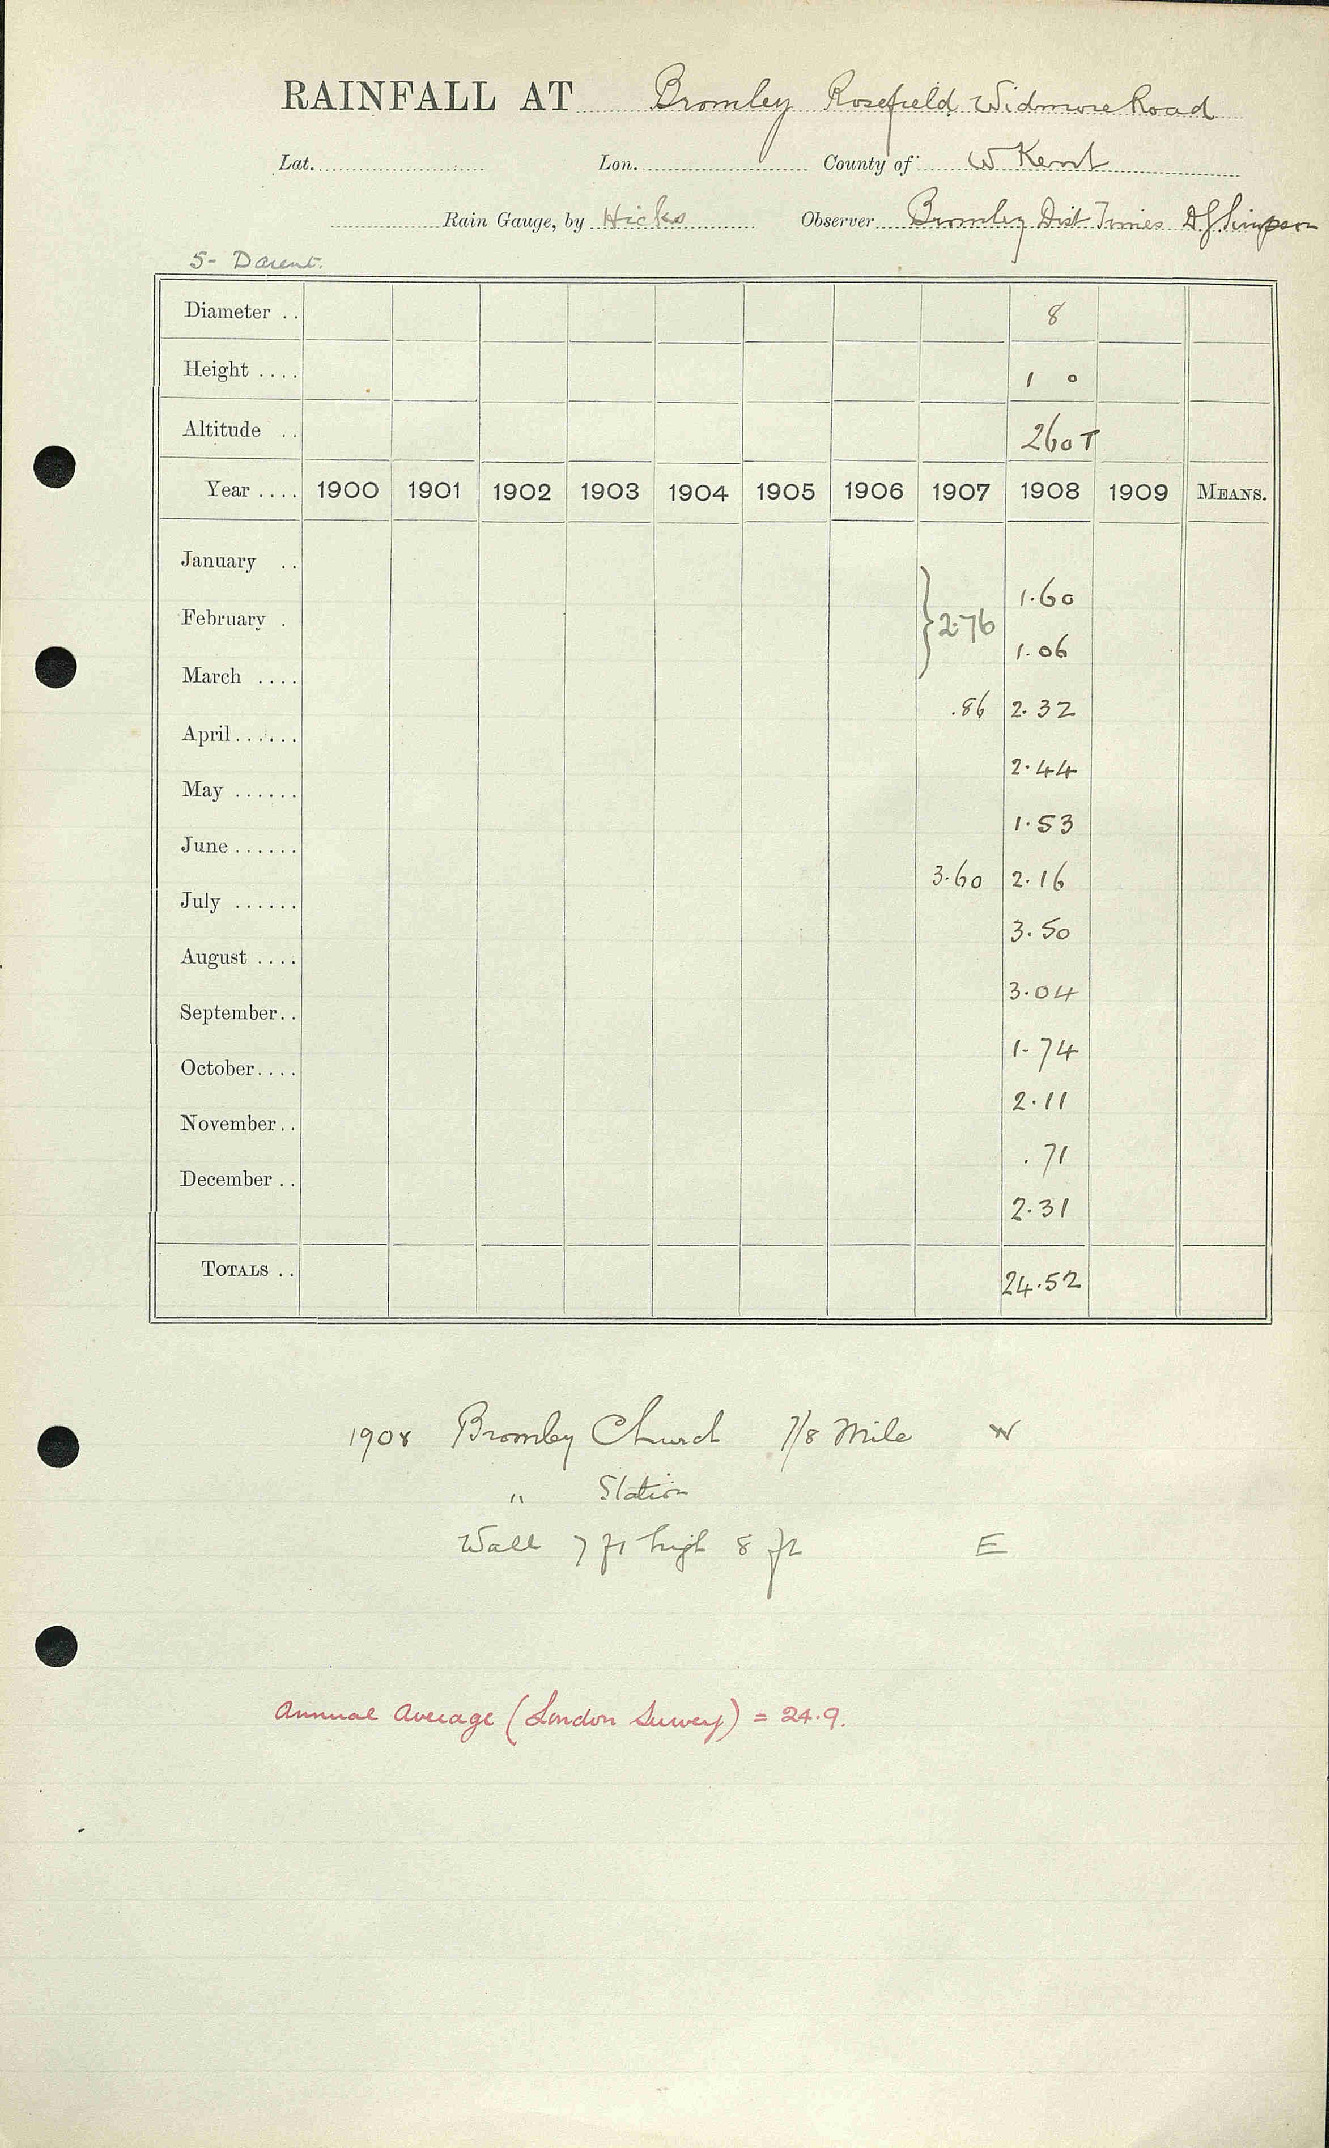 RAINFALL AT Bromley Rosefield Widmore Road
Lat. Lon. County of W Kent
Rain Gauge, by Hicks Observer Bromley Dist Times A.J. Simpson
5- Darent.
Diameter .. 8
Height .... 1 0
Altitude .. 260 T
Year .... 1900 1901 1902 1903 1904 1905 1906 1907 1908 1909 MEANS.
January .. 1.60
February . } 2.76 1.06
March .... .86 2.32
April...... 2.44
May ...... 1.53
June...... 3.60 2.16
July ...... 3.50
August .... 3.04
September.. 1.74
October.... 2.11
November.. .71
December .. 2.31
TOTALS .. 24.52
1908 Bromley Church 7/8 Mile W
" Station
Wall 7 ft high 8 ft E
Annual Average (London Survey) = 24.9.